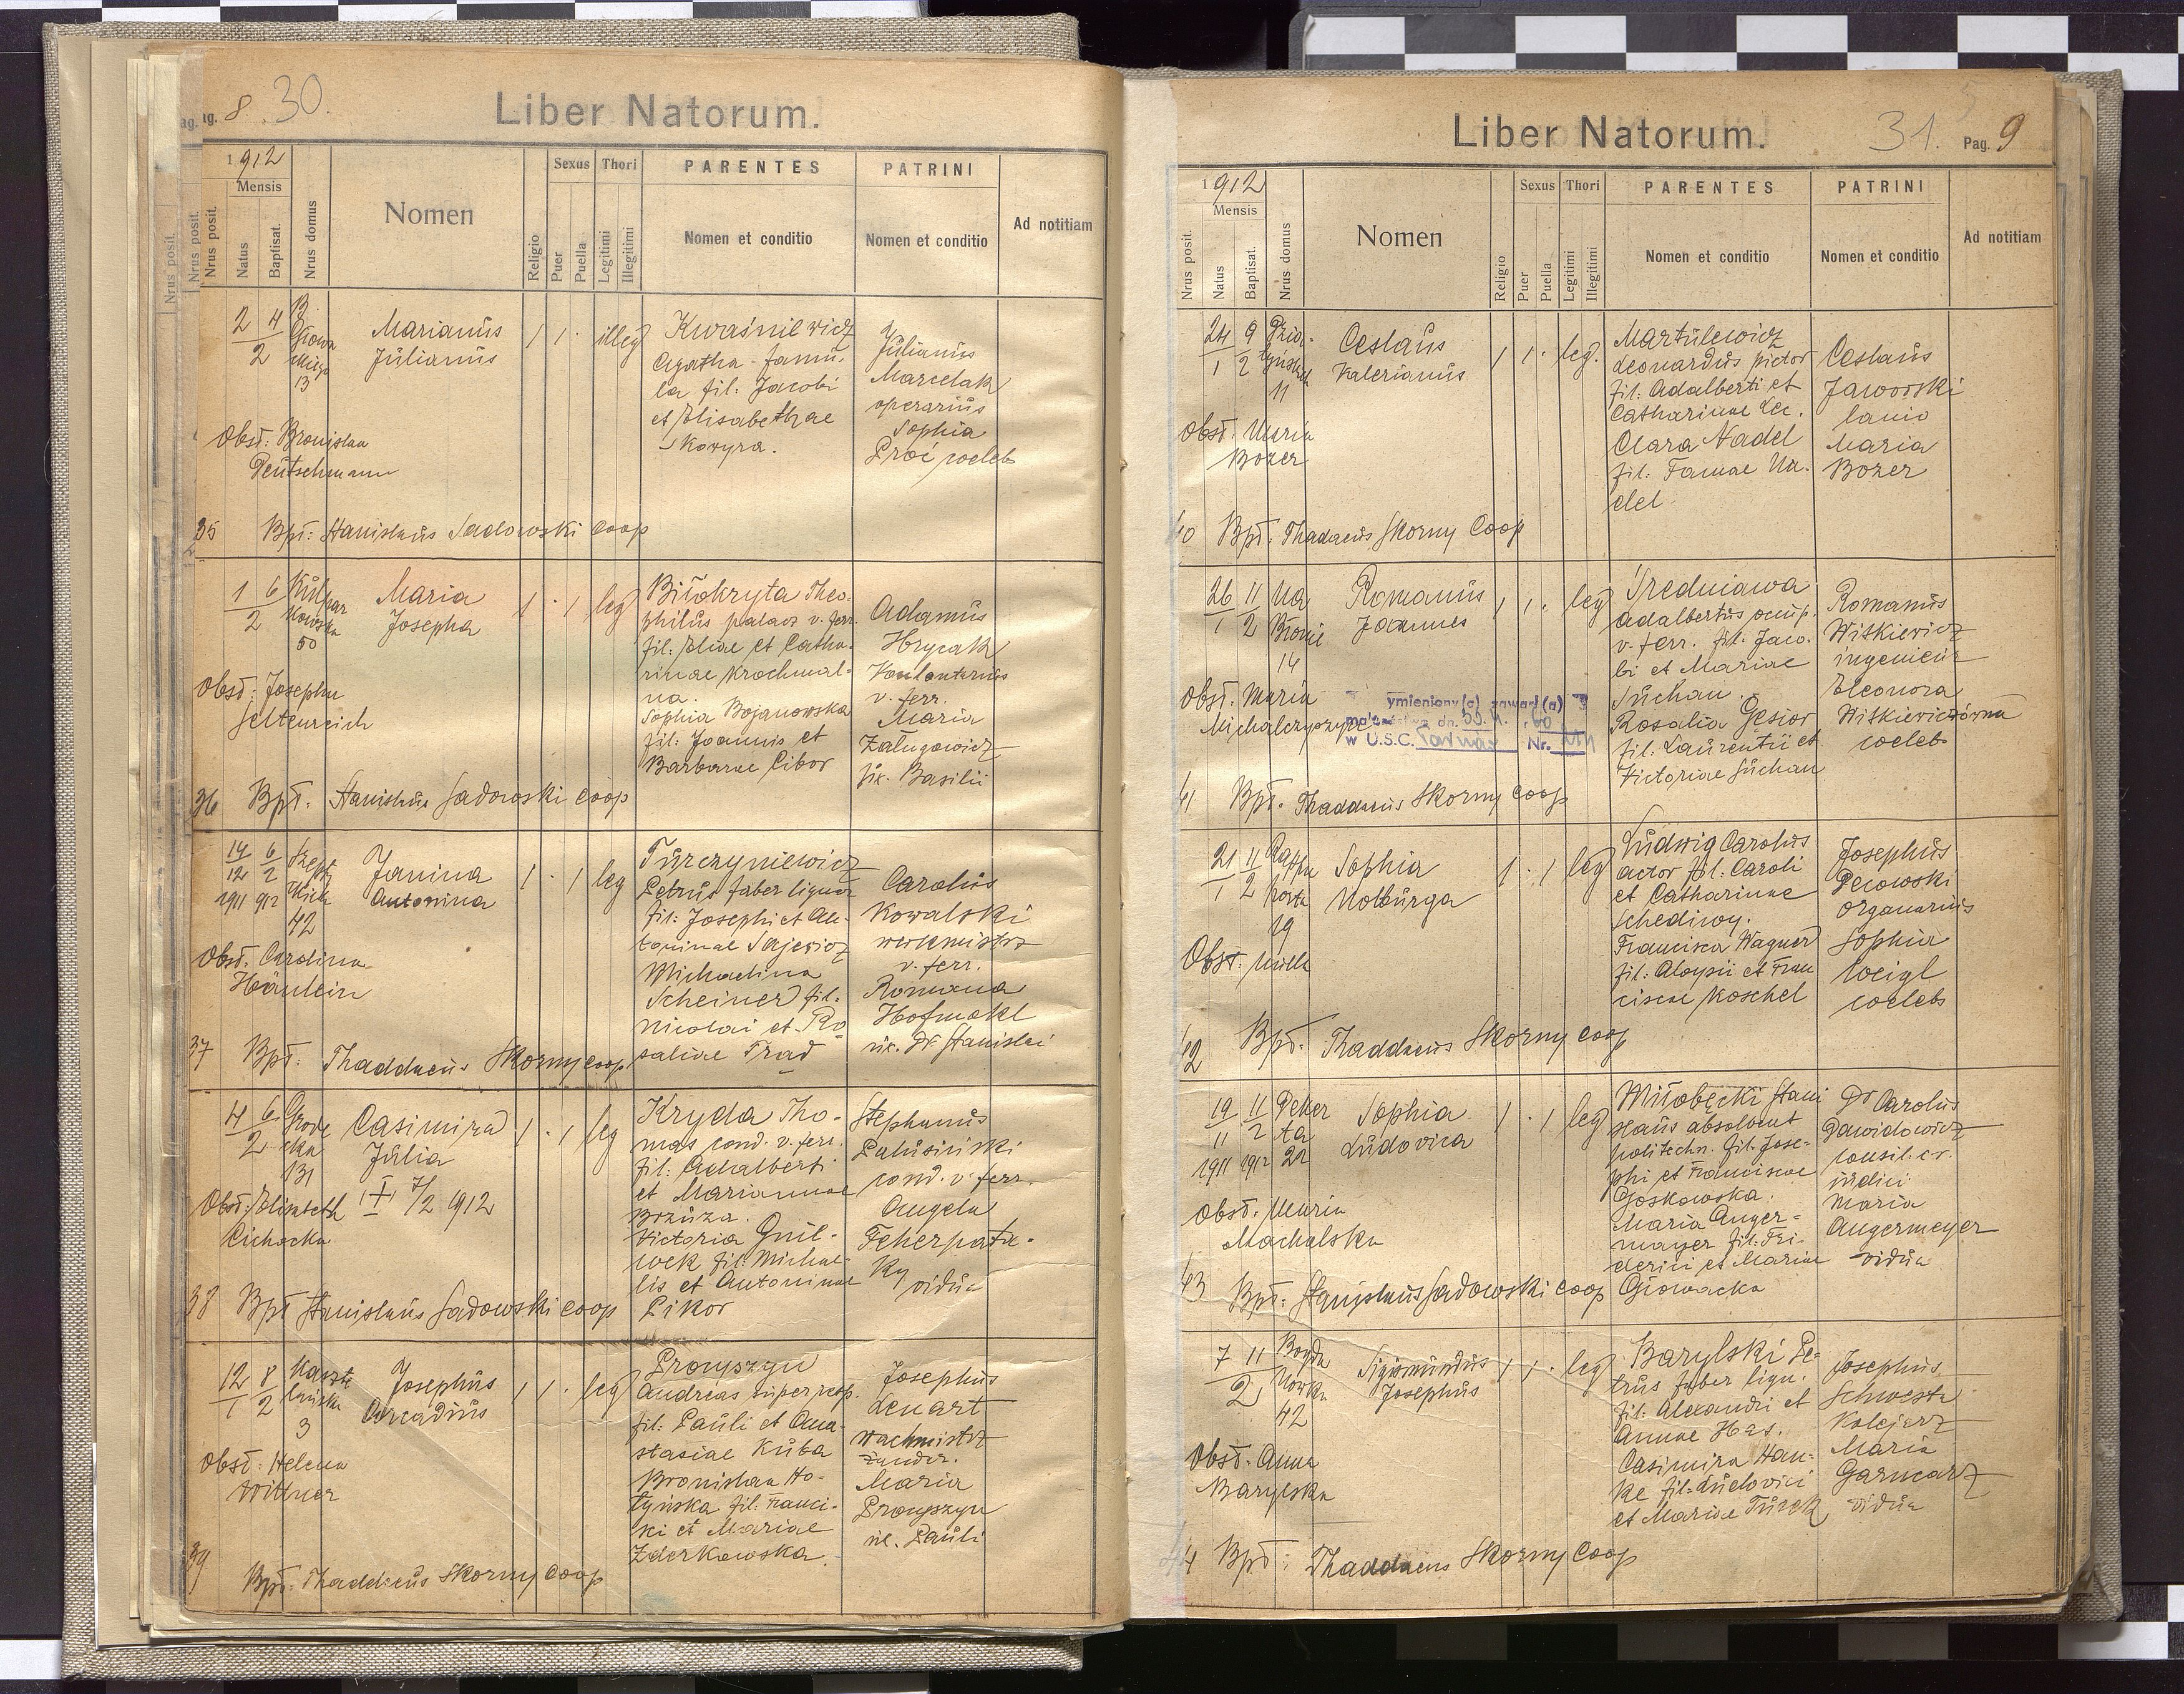 Pag. 8 30.
Liber Natorum.
1912
Mensis
Nrus posit.
Natus
Baptisat.
Nrus domus
Nomen
Religio
Sexus
Puer
Puella
Thori
Legitimi
Illegitimi
PARENTES
Nomen et conditio
PATRINI
Nomen et conditio
Ad notitiam
2 4
2
13
Marianus
Julianus
1 1 · illeg
Kwaśnilwicz
Agatha - famu-
la fil: Jacobi
et Elisabethae
Skowyra.
Julianus
Marcelak
operarius
Sophia
Proi coelebs
Obst: Bronislau
Deutschmann
35 Bpt: Stanislaus Sadowski Coop
1 6
2
Kulpar
kowska
50
Maria
Josepha
1 · 1 leg
Bitokryta Theo-
philus palacz v. ferr.
fil: Eliae et Catha-
rinae Krochmal-
na.
Sophia Bojanowska
fil: Joannis et
Barbarae Cibor
Adamus
Hrycak
Vonlontarius
v. ferr.
Maria
Załugowicz
Basilii
Obst: Josepha
Seltenreich
36 Bpt: Stanislaus Sadowski Coop
14 6
12 2
1911 912
42
Janina
Antonina
1 · 1 leg
Turczyniewicz
Petrus faber lignar
fil: Josephi et An-
toninae Sajewicz
Michalina
Scheiner fil:
Nicolai et Ro
saliae Trad
Carolus
Kowalski
werkmistrz
v. ferr.
Romana
Hofmokl
Dr Stanislai
Obst. Carolina
Häulein
37 Bpt: Thaddaeus Skorny coop
4 6
2
Grode
cka
131
Casimira
Julia
7/2 1912
1 · 1 leg
Kryda Tho-
mas cond. v. ferr.
fil: Adalberti
et Mariannae
Brzuza.
Victoria Gnil-
wek fil: Michae-
lis et Antoninae
Pikor
Stephanus
Patusiński
cond. v. ferr.
Angela
Feherpata-
ky vidua
Obst: Elisabeth
Cichocka
38 Bpt Stanislaus Sadowski coop
12 8
1 2
3
Josephus
Arcadius
1 1 · leg
Pronyszyn
Andreas
fil: Pauli et Ana-
stasiae Kuba
Bronislaa Ho-
łyńska fil: Franci-
ski et Mariae
Zderkowska.
Josephus
Lenart
Wachmistrz
żandr.
Maria
Pronyszyn
Pauli
Obst: Helena
Wittner
39 Bpt: Thaddaeus Skorny coop
Liber Natorum. 31. Pag. 9
1912
Mensis
Nrus posit.
Natus
Baptisat.
Nrus domus
Nomen
Religio
Sexus
Puer
Puella
Thori
Legitimi
Illegitimi
PARENTES
Nomen et conditio
PATRINI
Nomen et conditio
Ad notitiam
24 9
1 2
11
Ceslaus
Valerianus
1 1 · leg.
Martulewicz
Leonardus pictor
fil: Adalberti et
Catharinae Lec.
Clara Nadel
fil: Fannae Na-
del
Ceslaus
Jaworski
lanio
Maria
Bozer
Obst. Maria
Bozer
40 Bpt: Thadaeus Skorny Coop
26 11
1 2
Na
Bronie
14
Romanus
Joannes
1 1 · leg
Średniawa
Adalbertus
v. ferr. fil: Jaco-
bi et Mariae
Suchan.
Rosalia Gęsior
fil: Laurentii et
Victoriae Suchan
Romanus
Witkiewicz
ingenieur
Eleonora
Witkiewiczówna
coelebs
Obst. Maria
Michalczyszyn
ymieniony(a) zawarł(a)
w U.S.C. Nr.
41 Bpt. Thaddaeus Skorny Coop
21 11
1 2
Rappa
porta
19
Sophia
Notburga
1 · 1 leg
Ludwig Carolus
actor fil: Caroli
et Catharinae
Schediwy.
Francisca Wagner
fil: Aloysii et Fran
ciscae Koschel
Josephus
Pecowski
organarius
Sophia
Weigl
coelebs
Obst: Nulla
42 Bpt: Thaddaeus Skorny coop
19 11
11 2
1911 1912
Peker
ta
22
Sophia
Ludovica
1 · 1 leg
Miłobęcki Stani
slaus absolvent
politechn. fil: Jose-
phi et Franciscae
Goskowska.
Maria Anger-
mayer fil: Fri-
derici et Mariae
Głowacka
Dr Carolus
Dawidowicz
consil. cr.
iudici
Maria
Angermeyer
vidua
Obst. Maria
Machalska
43 Bpt: Stanislaus Sadowski coop
7 11
2
Bogda
nowka
42
Sigismundus
Josephus
1 1 · leg
Barylski Pe-
trus faber lign.
fil: Alexandri et
Annae Has.
Casimira Han-
ke fil: Ludovici
et Mariae Turek
Josephus
Schwestu
Kolejarz
Maria
Garncarz
vidua
Obst: Anna
Barylska
44 Bpt: Thaddaeus Skorny Coop